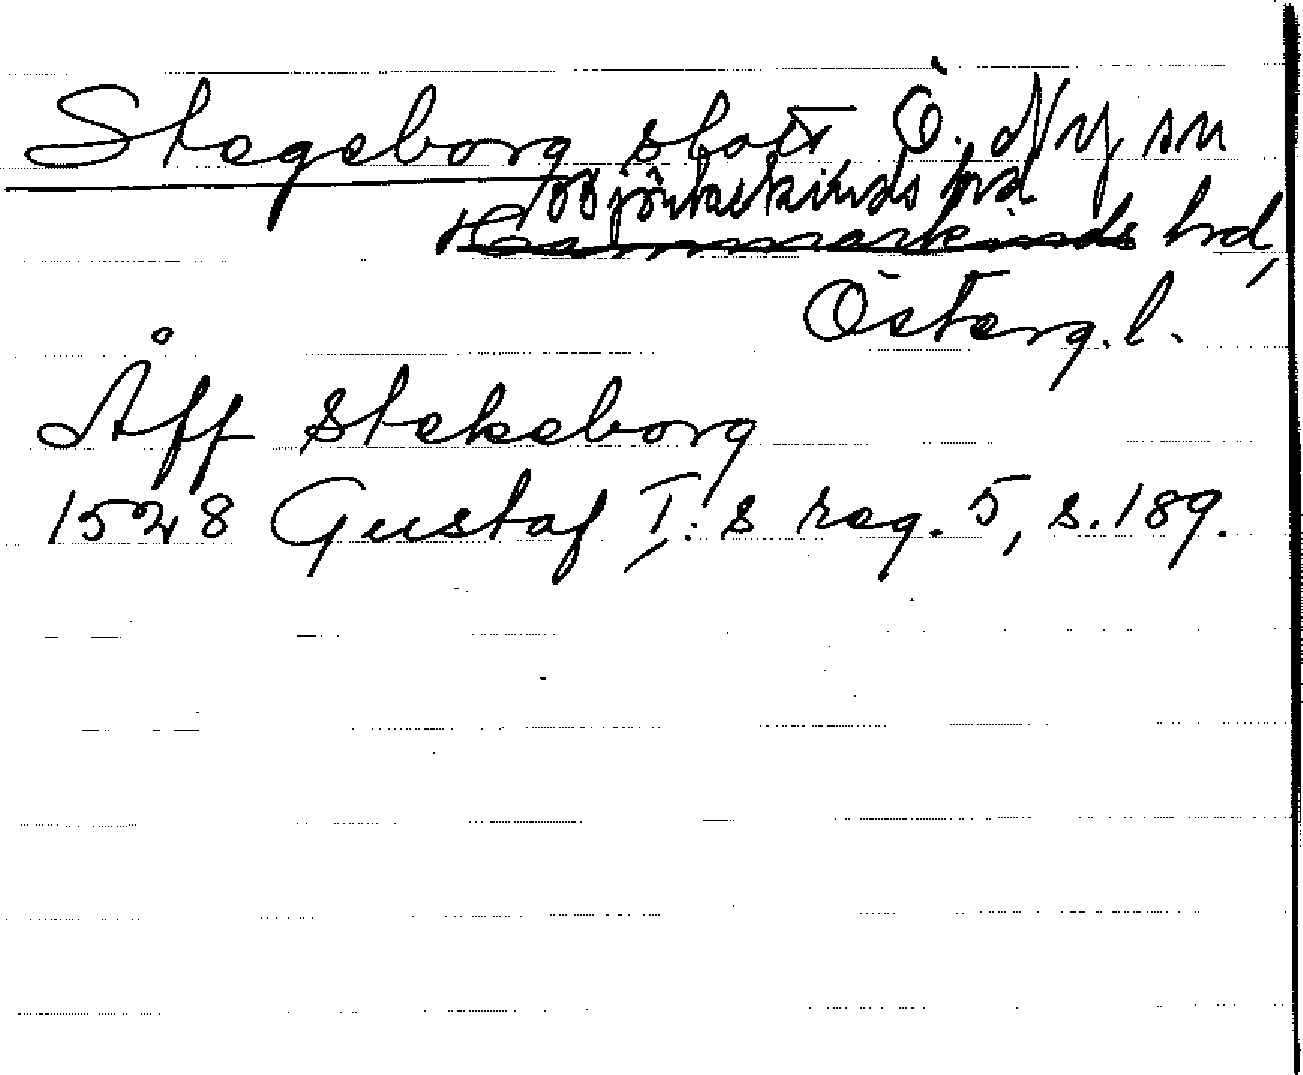 Stegeborg slott, Ö. Ny sn
Björkekinds hrd
Hammarkinds hrd,
Österg. l.
Åff Stekeborg
1528 Gustaf I:s reg. 5, s. 189.